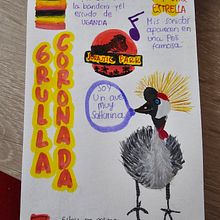 la bandera y el
escudo de
UGANDA
ESTRELLA
Mis sonidos
aparecen en
una Peli
famosa
JURASIC PARK
GRULLA
CORONADA
SOY
Un ave
muy
Saltarina